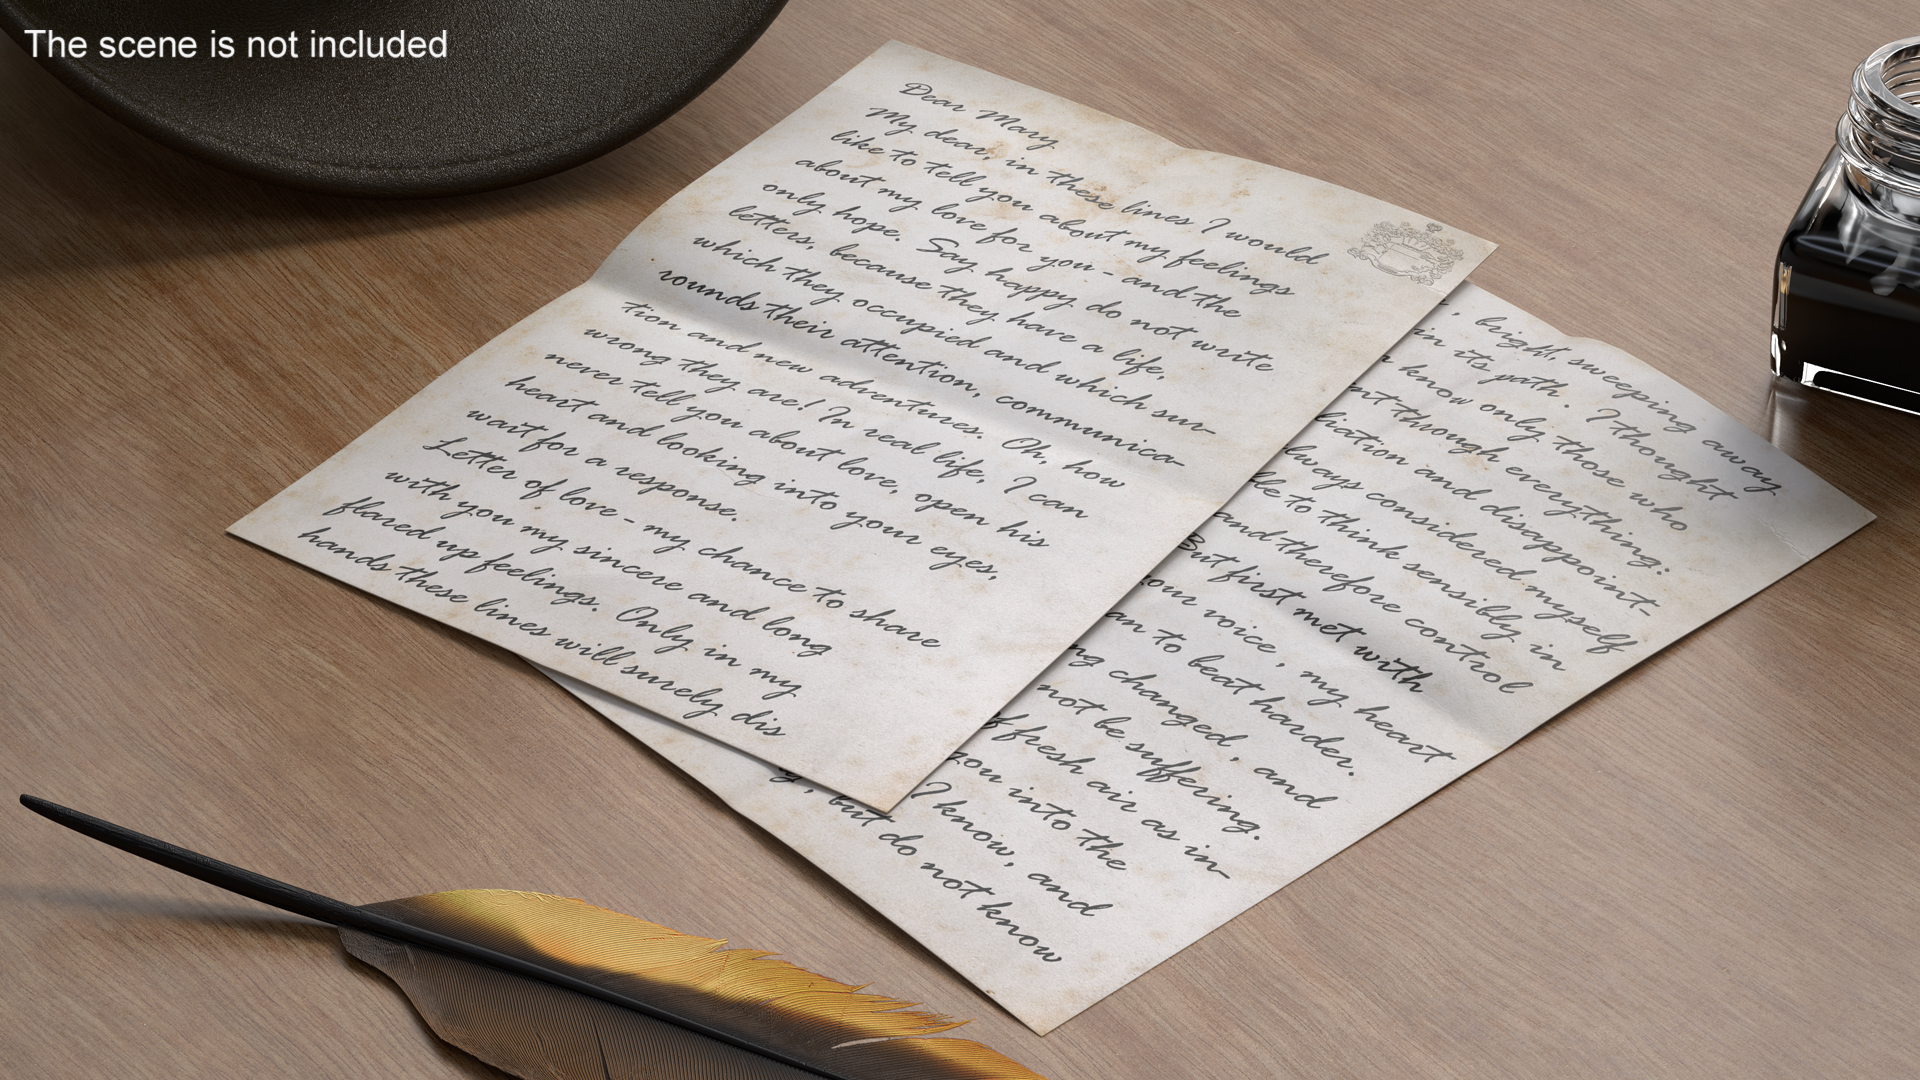 The scene is not included
Dear Mary
My dear, in these lines I would
like to tell you about my feelings
about my love for you - and the
only hope. Say happy do not write
letters, because they have a life,
which they occupied and which sur-
rounds their attention, communica-
tion and new adventures. Oh, how
wrong they are! In real life, I can
never tell you about love, open his
heart and looking into your eyes,
wait for a response.
Letter of love - my chance to share
with you my sincere and long
flared up feelings. Only in my
hands these lines will surely dis
, bright, sweeping away
in its path. I thought
know only those who
through everything:
and disappoint-
considered myself
to think sensibly in
and therefore control
But first met with
your voice, my heart
to beat harder.
changed, and
not be suffering.
of fresh air as in-
you into the
I know, and
, but do not know